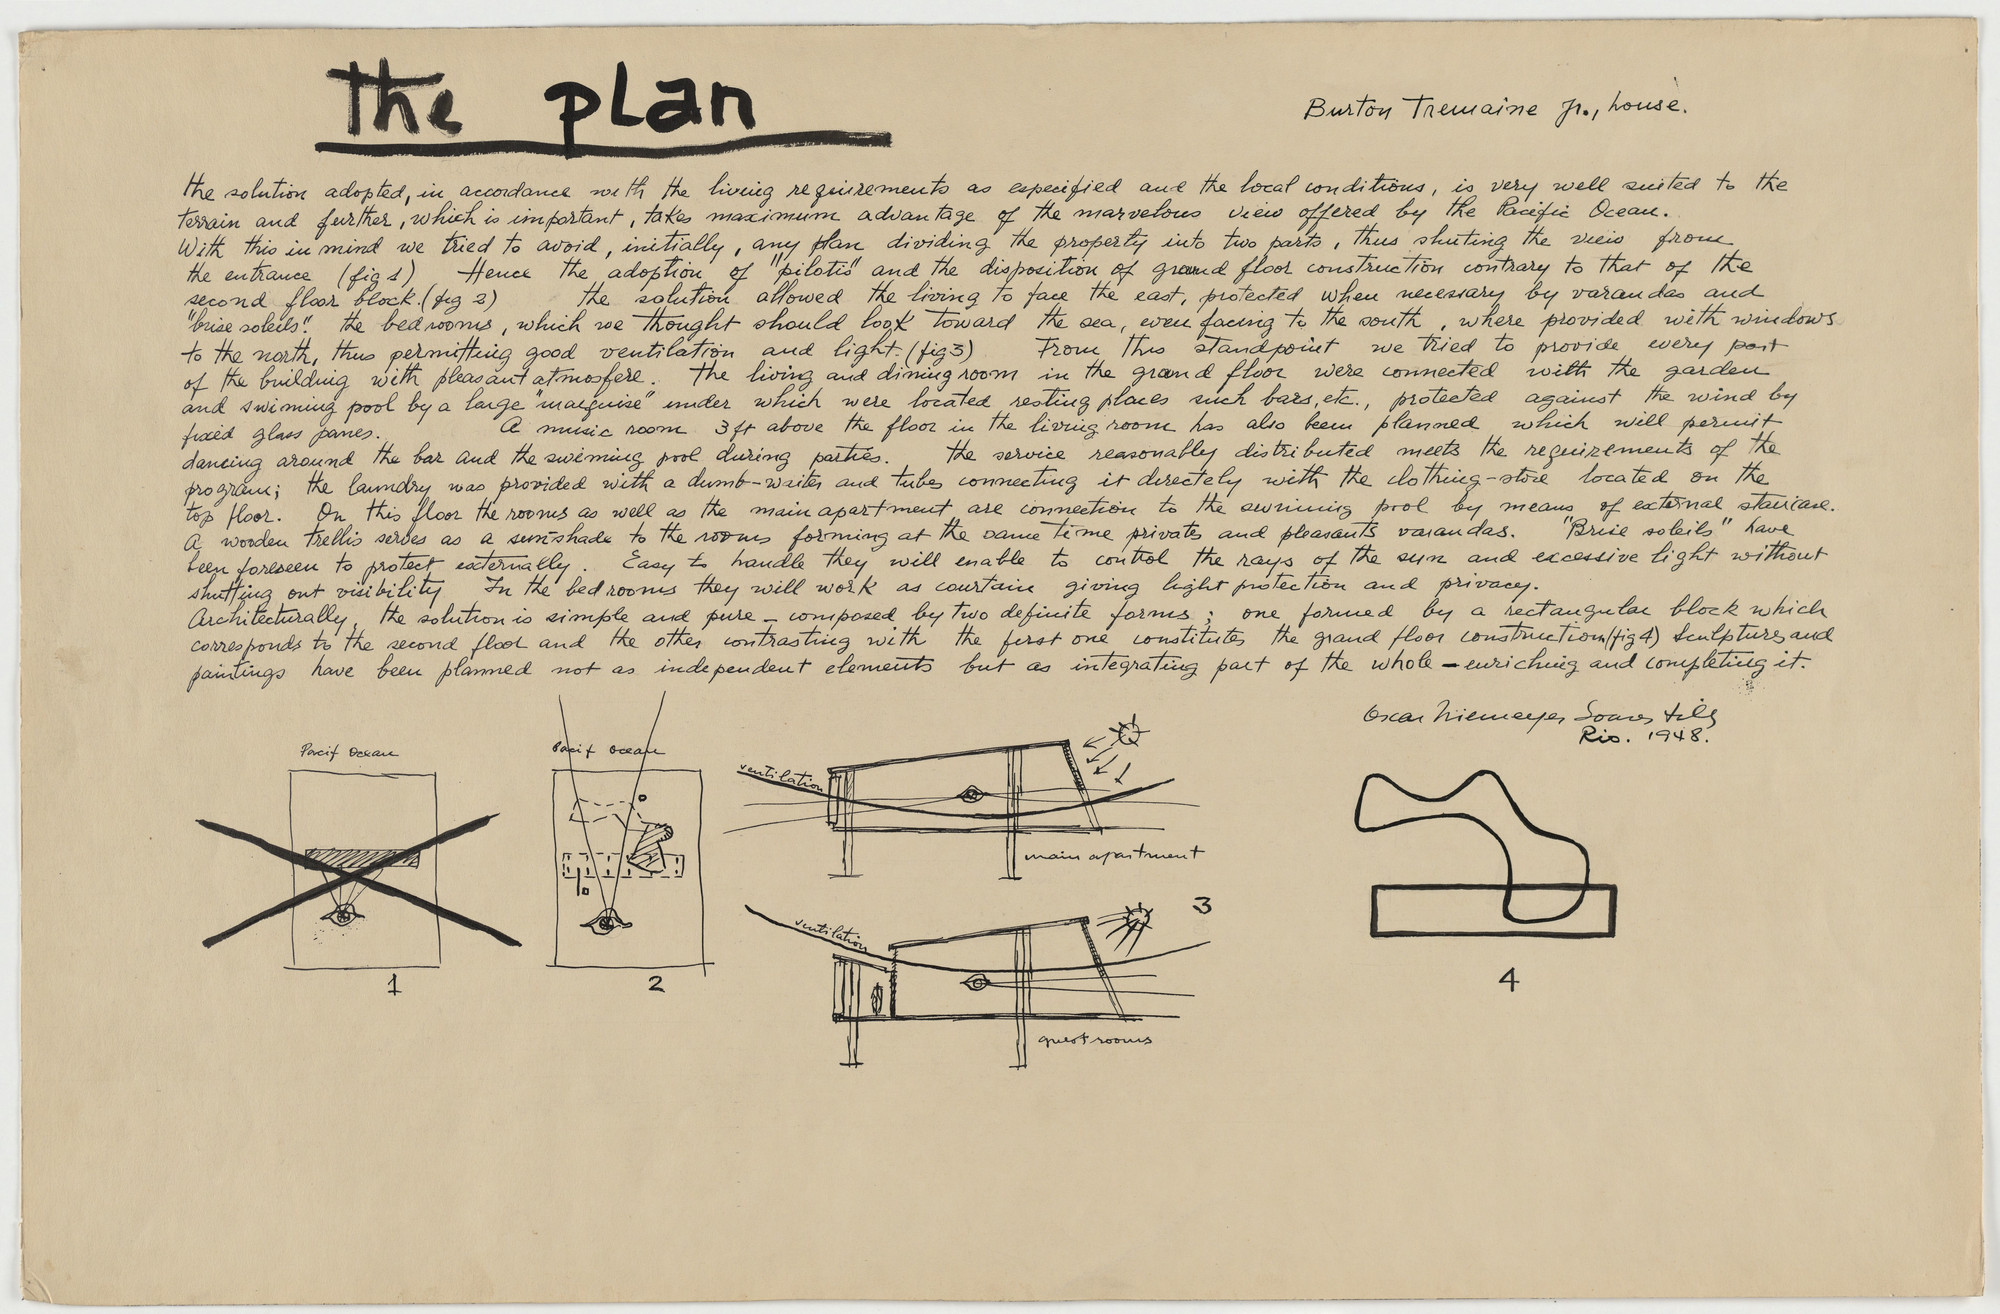 the plan
Burton Tremaine Jr., house.
the solution adopted, in accordance with the living requirements as especified and the local conditions, is very well suited to the
terrain and further, which is important, takes maximum advantage of the marvelous view offered by the Pacific Ocean.
With this in mind we tried to avoid, initially, any plan dividing the property into two parts, thus shuting the view from
the entrance (fig 1) Hence the adoption of "pilotis" and the disposition of ground floor construction contrary to that of the
second floor block. (fig 2) the solution allowed the living to face the east, protected when necessary by varandas and
"brise soleils". the bedrooms, which we thought should look toward the sea, even facing to the south, where provided with windows
to the north, thus permitting good ventilation and light. (fig 3) From this standpoint we tried to provide every part
of the building with pleasant atmosfere. the living and dining room in the ground floor were connected with the garden
and swiming pool by a large "marquise" under which were located resting places such bars, etc., protected against the wind by
fixed glass panes. A music room 3 ft above the floor in the living room has also been planned which will permit
dancing around the bar and the swiming pool during parties. the service reasonably distributed meets the requirements of the
program; the laundry was provided with a dumb-waiter and tubes connecting it directely with the clothing-store located on the
top floor. On this floor the rooms as well as the main apartment are connection to the swimming pool by means of external staircase.
A wooden trellis serves as a sun-shade to the rooms forming at the same time privates and pleasants varandas. "Brise soleils" have
been foreseen to protect externally. Easy to handle they will enable to control the rays of the sun and excessive light without
shutting out visibility In the bedrooms they will work as courtain giving light protection and privacy.
Architecturally, the solution is simple and pure – composed by two definite forms; one formed by a rectangular block which
corresponds to the second floor and the other contrasting with the first one constitutes the grand floor construction (fig 4) Sculptures and
paintings have been planned not as independent elements but as integrating part of the whole – enriching and completing it.
Oscar Niemeyer Soares Filho
Rio. 1948.
Pacif Ocean
1
Pacif Ocean
2
ventilation
main apartment
3
ventilation
guest rooms
4